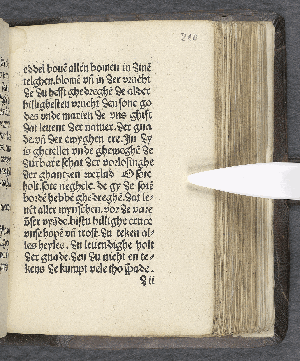 eddel bouē allen bomen in dinē
telghen. blomē vñ in der vrucht
de du hefft ghedreghē de alder
hillighesten vrucht den sone go
des vnde marien de vns ghift
dat leuent der natuer. der gna
de. vñ der ewyghen ere. In dy
is ghestellet vnde ghewaghē de
durbare schat der vorlosinghe
der ghantzen werlt. O sote
holt. sote neghele. de gy de sote
borde hebbē ghedreghē. dat le
uēt aller mynschen. vor de vare
bistu hillighe cruce
vnse hope vñ trost. Du teken al
les heyles. Du leuendighe holt
der gnade. Den du nicht en te
kens de kumpt vele tho spade.